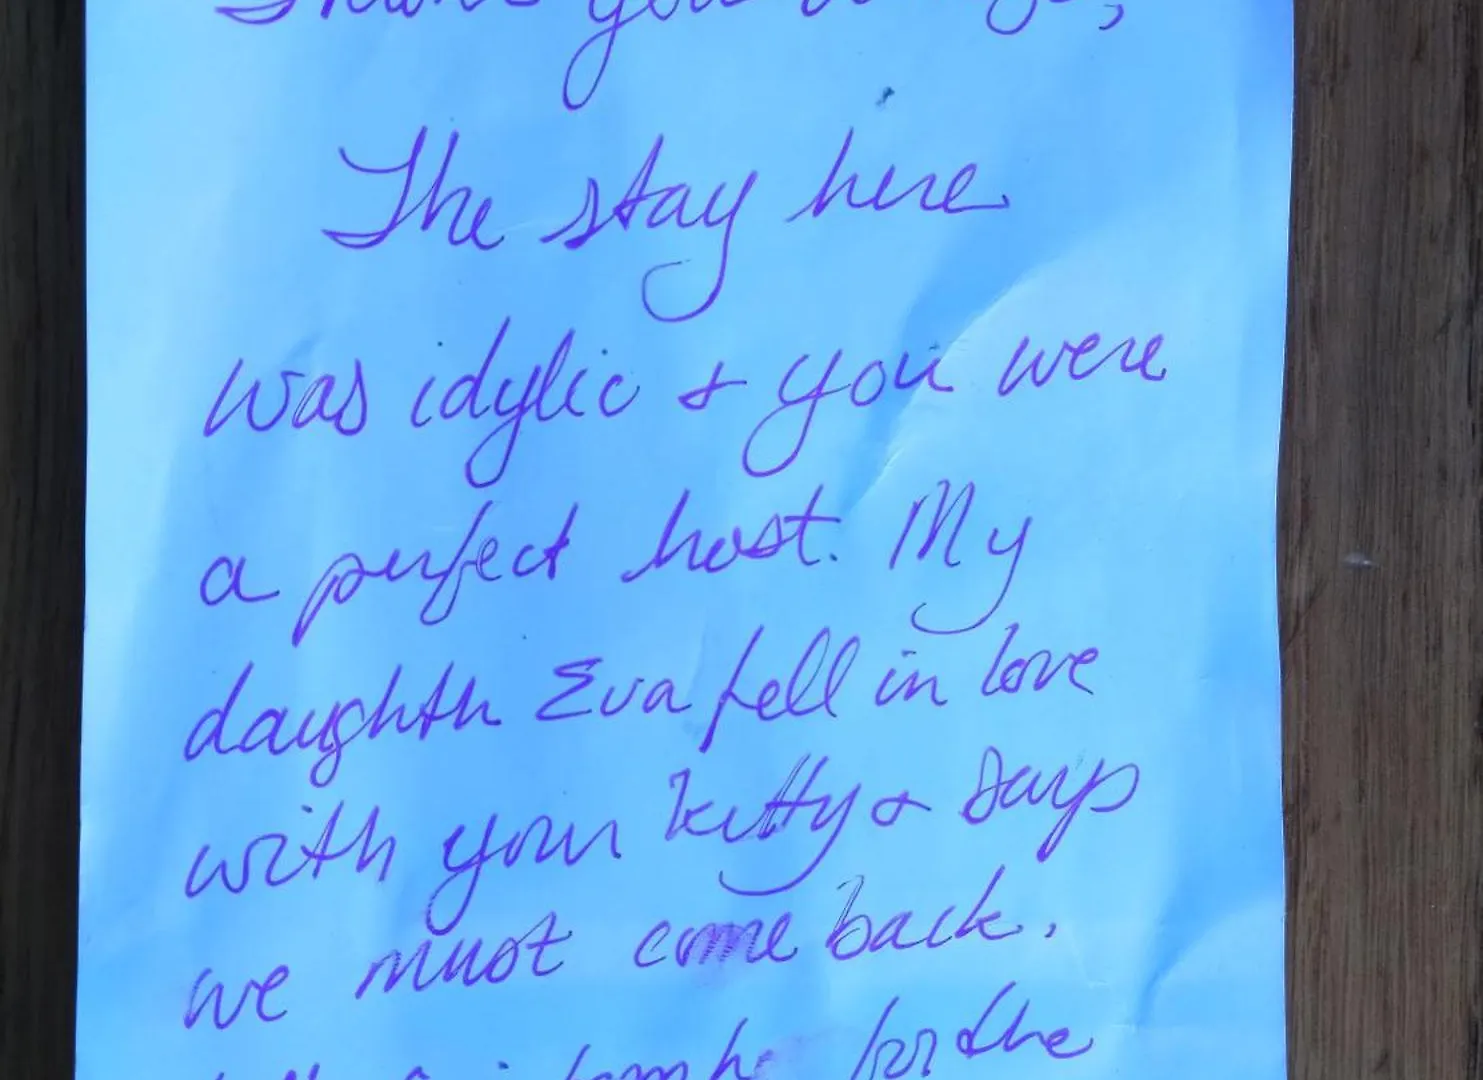 Thank you
The stay here
was idylic + you were
a perfect host. My
daughth Eva fell in love
with your kitty & says
we must come back.
for the